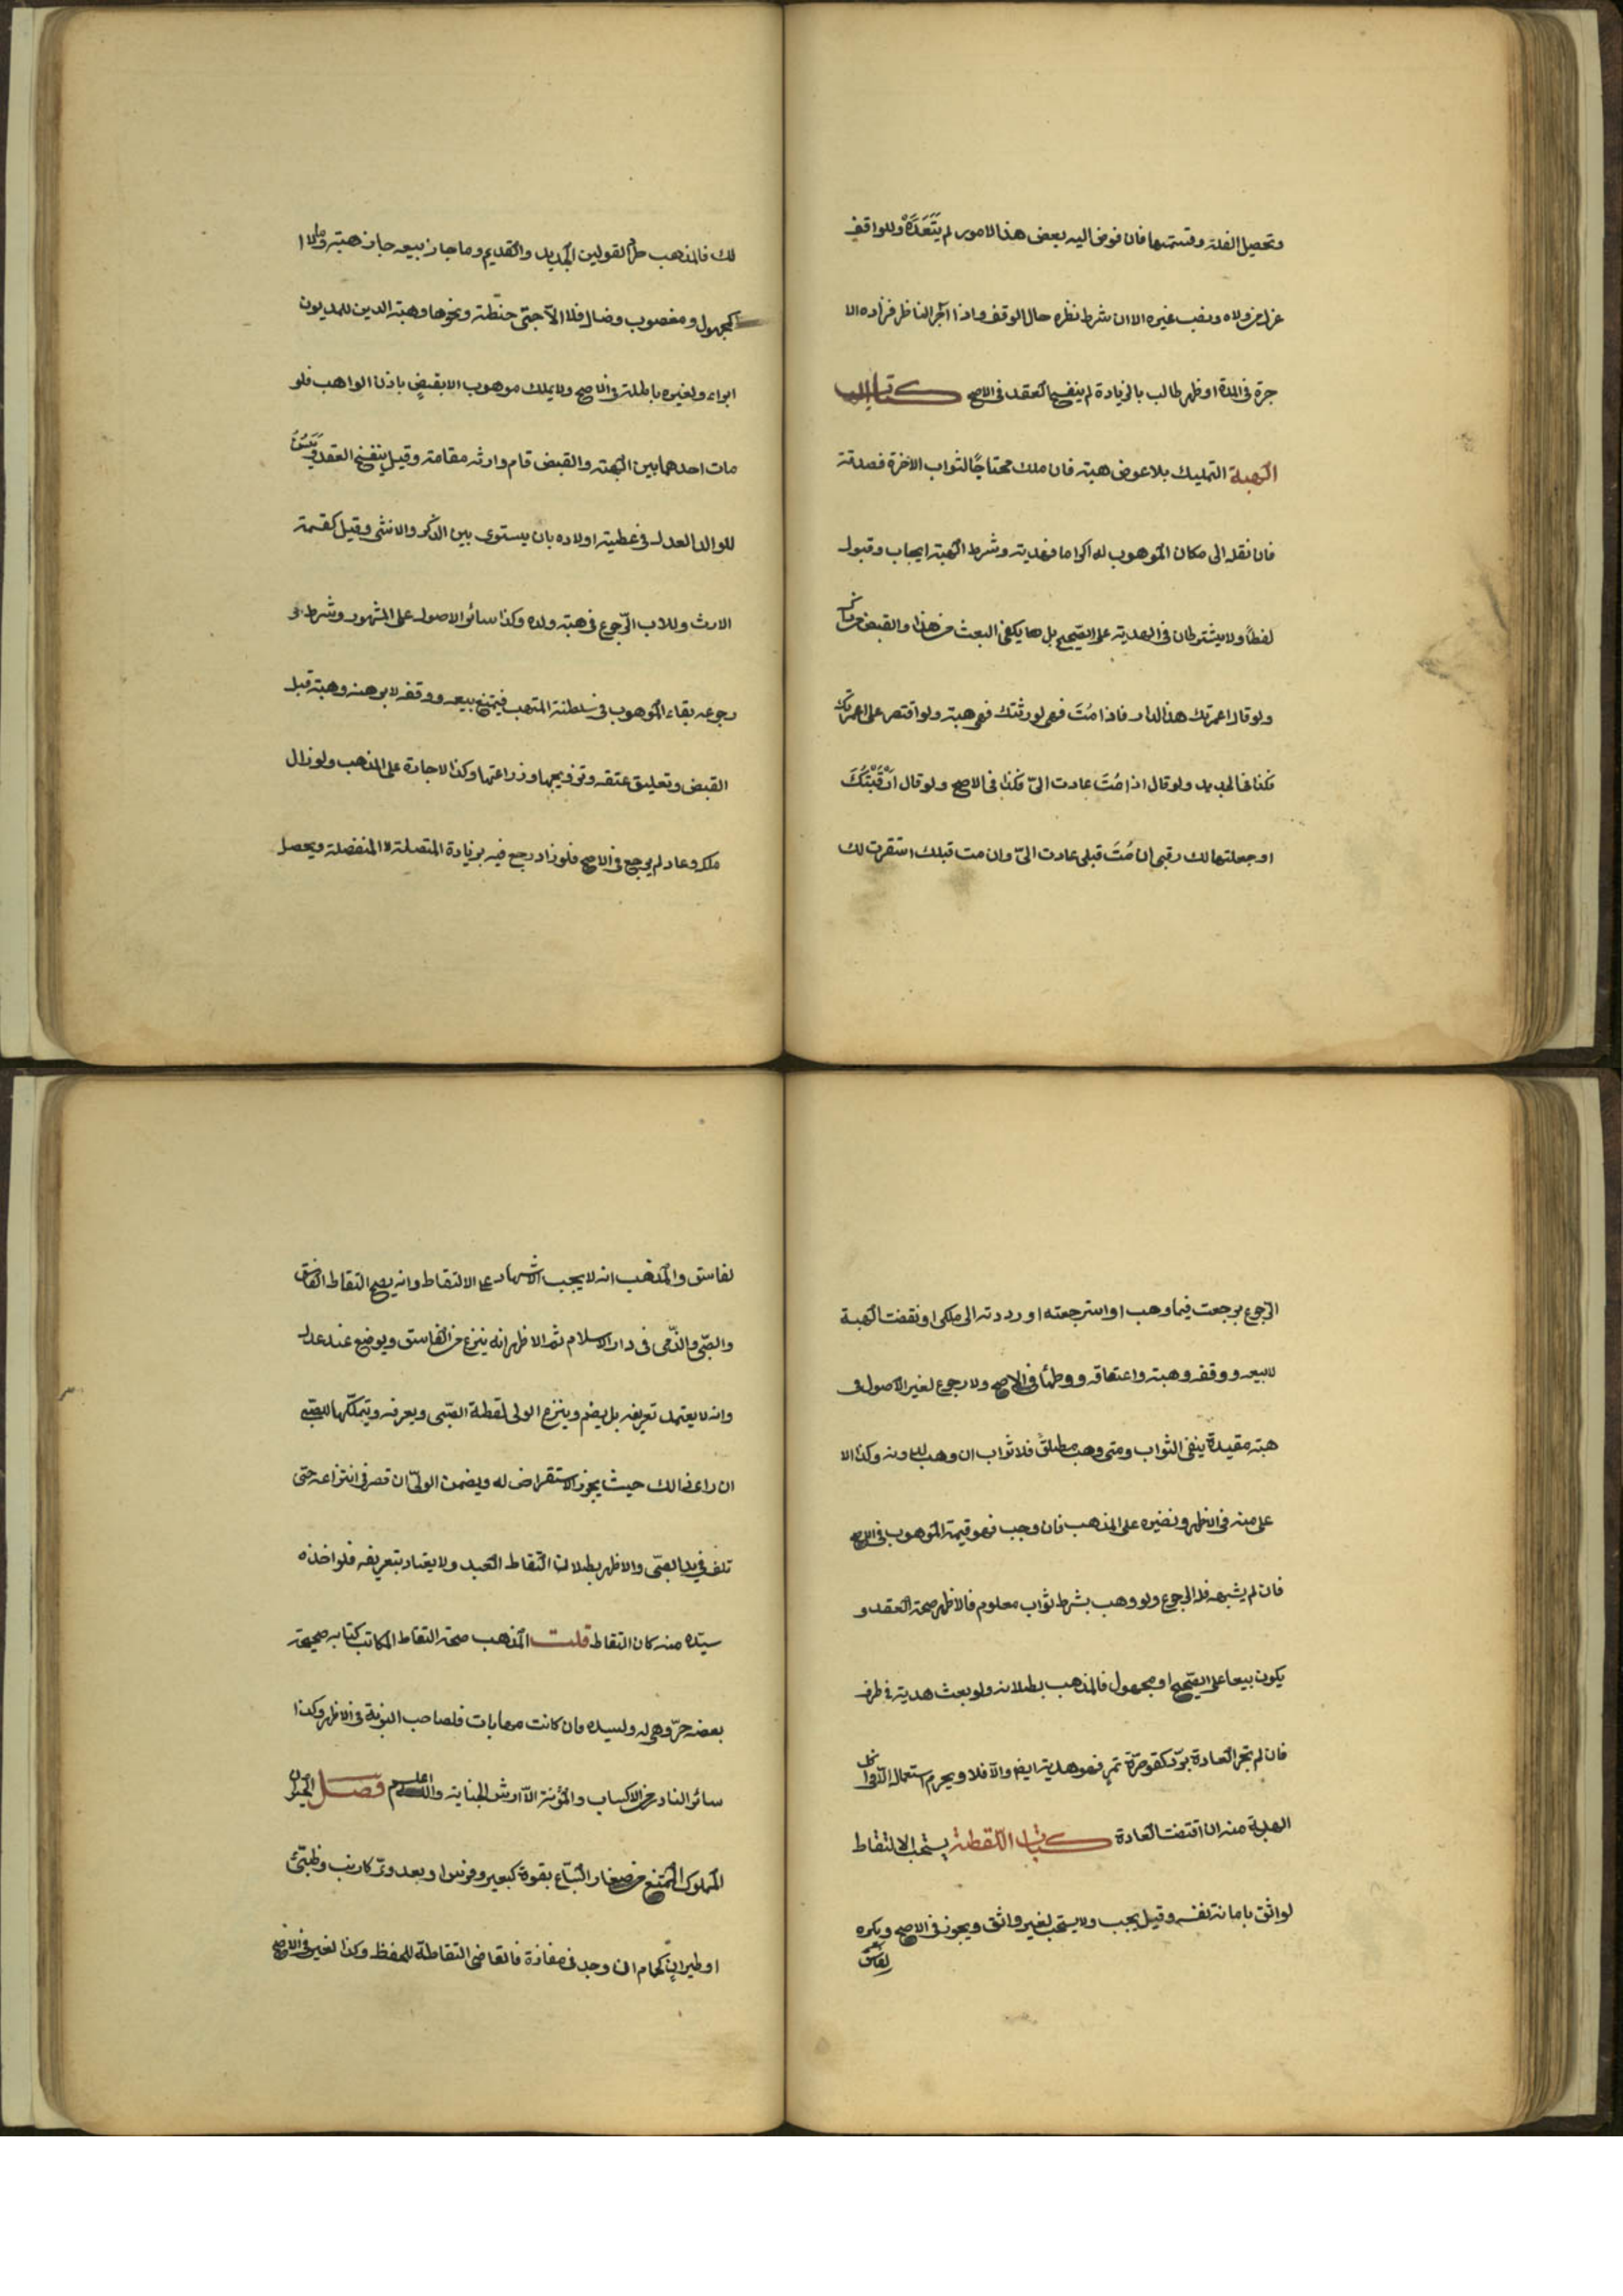 وتحصيل الغلة وقسمتها فان فوض اليه بعض هذا الامور لم يَتَعَدَّهُ وللواقف
عزل من ولاه ونصب غيره الا ان شرط نظره حال الوقف واذا اآجر الناظر فزاده الا
جرة في المدة او ظهر طالب بالزيادة لم ينفسخ العقد في الاصح كتاب الهبة
الهبة التمليك بلا عوض هبة فان ملك محتاجًا لثواب الآخرة فصدقة
فان نقله الى مكان الموهوب له اكراما فهدية وشرط الهبة ايجاب وقبول
لفظًا ولا يشترطان في الهدية على الصحيح بل يكفي البعث من هذا والقبض من ذاك
ولو قال اعمرتك هذا الدار فاذا مُتَّ فهي لورثتك فهي هبة ولو اقتصر على اعمرتك
فكذا في الجديد ولو قال اذا مُتَّ عادت اليّ فكذا في الاصح ولو قال اَرْقَبْتُكَ
او جعلتها لك رقبى ان مُتَّ قبلي عادت اليّ وان مت قبلك استقرت لك
لك فالمذهب طرد القولين الجديد والقديم وما جاز بيعه جاز هبته وما لا
كمجهول ومغصوب وضال فلا الاّ حبتى حنطة ونحوها وهبة الدين للمديون
ابراء ولغيره باطلة في الاصح ولا يملك موهوب الا بقبضٍ باذن الواهب فلو
مات احدهما بين الهبة والقبض قام وارثه مقامه وقيل ينفسخ العقد ويَسُنُّ
للوالد العدل في عطية اولاده بان يستوى بين الذكر والانثى وقيل كقسمة
الارث وللاب الرّجوع في هبة ولده وكذا سائر الاصول على المشهور وشرط
رجوعه بقاء الموهوب في سلطنة المتهب فيمتنع بيعه ووقفه لا برهنه وهبته قبل
القبض وتعليق عتقه وتزويجها وزراعتها وكذا الاجارة على المذهب ولو زال
ملكه وعاد لم يرجع في الاصح فلو زاد رجع فيه بزيادة المتصلة لا المنفصلة ويحصل
الرّجوع برجعت فيما وهب او استرجعته او رددته الى ملكي او نقضت الهبة
لا ببيعه ووقفه وهبته واعتاقه ووطئها في الاصح ولا رجوع لغير الاصول في
هبة مقيدة ينفي الثواب ومتى وهب مطلقً فلا ثواب ان وهب لدونه وكذا الا
على منه في الاظهر ونضيره على المذهب فان وجب فهو قيمة الموهوب في الاصح
فان لم يثبه فله الرجوع ولو وهب بشرط ثواب معلوم فالاظهر صحة العقد و
يكون بيعا على الصّحيح او مجهول فالمذهب بطلانه ولو بعث هدية في ظرف
فان لم تجر العادة بردّه كقوصرّة تمرٍ فهو هدية ايضا والاّ فلا ويحرم استعماله الاّ في اكل
الهدية منه ان اقتضت العادة كتاب اللقطة يستحب الالتقاط
لواثق بامانة نفسه وقيل يجب ولا يستحب لغير واثق ويجوز في الاصح ويكره
لفاسق
لفاسق والمذهب انه لا يجب الاشهاد على الالتقاط وانه يصح التقاط الفاسق
والصّبى والذّمى في دار الاسلام ثم الاظهر انه ينزع من الفاسق ويوضع عند عدل
وانه لا يعتمد تعريفه بل يضم وينزع الولى لقطة الصّبى ويعرفه ويتملّكها للصّبى
ان راى ذالك حيث يجوز الاستقراض له ويضمن الولىّ ان قصر في انتزاعه حتى
تلف في يد الصبىّ والاظهر بطلان التقاط العبد ولا يعتاد بتعريفه فلو اخذه
سيّده منه كان التقاط قلت المذهب صحة التقاط المكاتب كتابه صحيحة
بعضه حرّ وهي له ولسيده فان كانت مهايات فلصاحب النوبة في الاظهر وكذا
سائر النادر من الاكساب والمؤنة الاّ ارش الجناية والله اعلم فصل الحيوان
المملوك الممتنع من صغار السّباع بقوة كبعير وفرس او بعدو كارنب وظبىّ
او طيرانٍ كحمام ان وجد في مفازة فالقاضى التقاطه للحفظ وكذا لغيره في الاصح